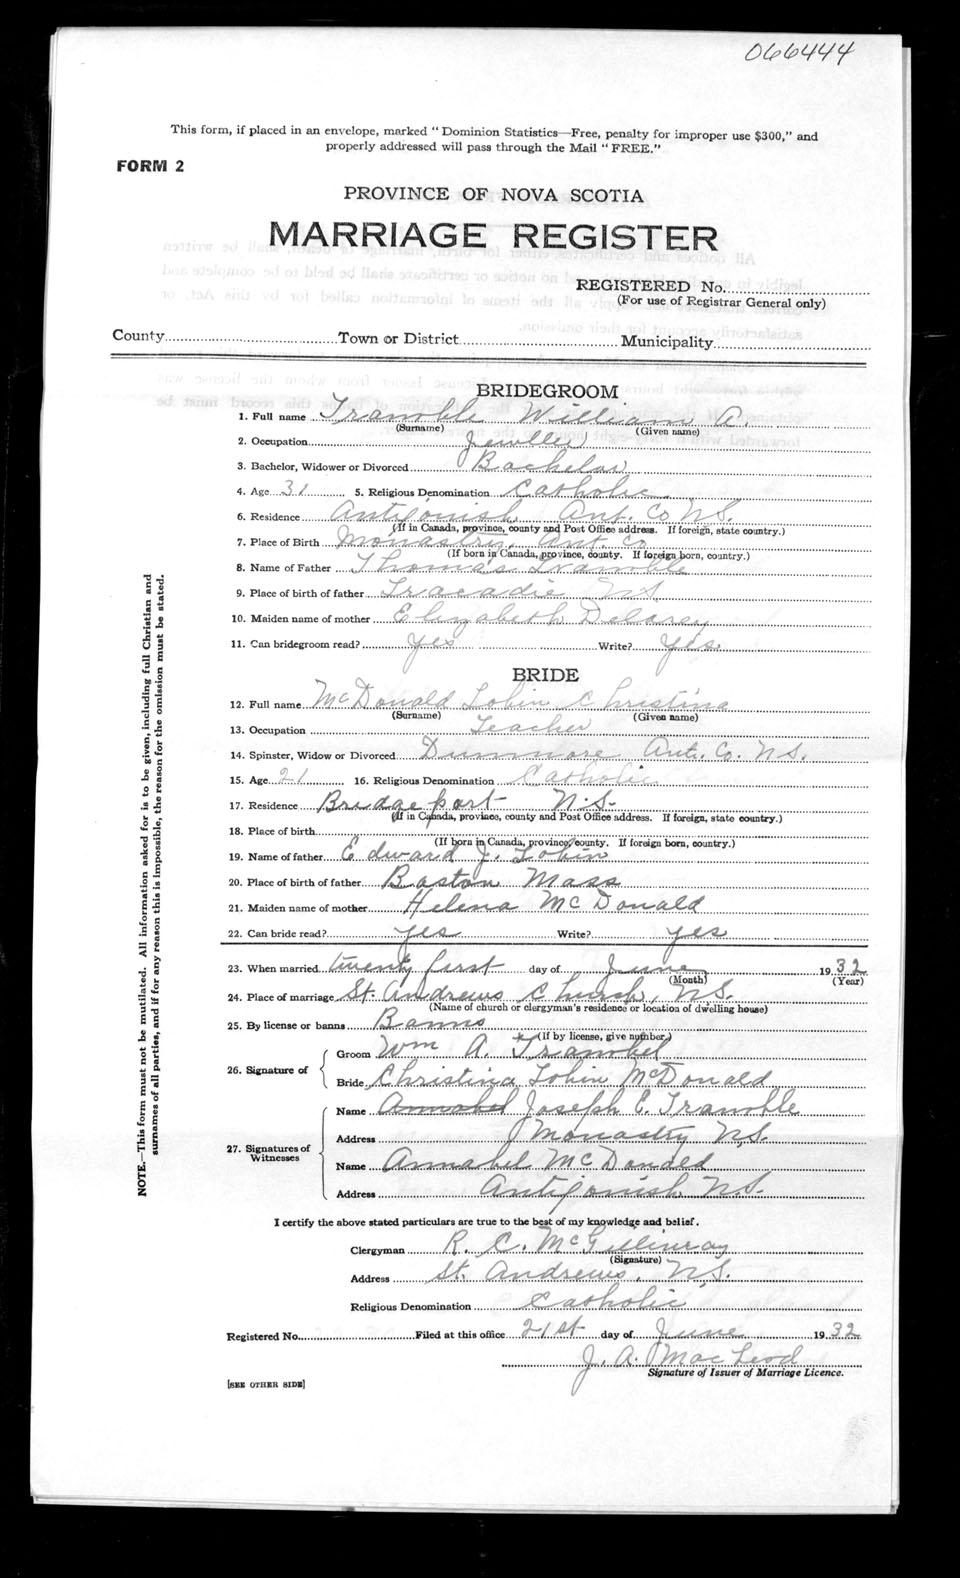 066444
This form, if placed in an envelope, marked " Dominion Statistics—Free, penalty for improper use $300," and
properly addressed will pass through the Mail " FREE."
FORM 2
PROVINCE OF NOVA SCOTIA
MARRIAGE REGISTER
REGISTERED No.
(For use of Registrar General only)
County Town or District Municipality
BRIDEGROOM
1. Full name Tramble William A.
(Surname) (Given name)
2. Occupation Jeweller
3. Bachelor, Widower or Divorced Bachelor
4. Age 31 5. Religious Denomination Catholic
6. Residence Antigonish Ant. Co N.S.
(If in Canada, province, county and Post Office address. If foreign, state country.)
7. Place of Birth Monastry, Ant. Co
(If born in Canada, province, county. If foreign born, country.)
8. Name of Father Thomas Tramble
9. Place of birth of father Tracadie N.S
10. Maiden name of mother Elizabeth Delorey
11. Can bridegroom read? yes Write? yes
BRIDE
12. Full name McDonald Tobin Christina
(Surname) (Given name)
13. Occupation Teacher
14. Spinster, Widow or Divorced Dunmore Ant. Co. N.S.
15. Age 21 16. Religious Denomination Catholic
17. Residence Bridgeport N.S.
(If in Canada, province, county and Post Office address. If foreign, state country.)
18. Place of birth
(If born in Canada, province, county. If foreign born, country.)
19. Name of father Edward J. Tobin
20. Place of birth of father Boston Mass
21. Maiden name of mother Helena McDonald
22. Can bride read? yes Write? yes
23. When married twenty first day of June 1932
(Month) (Year)
24. Place of marriage St. Andrews Church, N.S.
(Name of church or clergyman's residence or location of dwelling house)
25. By license or banns Banns
* (If by license, give number.)
26. Signature of
Groom Wm A. Trambel
Bride Christina Tobin McDonald
27. Signatures of Witnesses
Name Annabel Joseph E. Tramble
Address Monastry N.S.
Name Annabel McDonald
Address Antigonish N.S.
I certify the above stated particulars are true to the best of my knowledge and belief.
Clergyman R. C. McGillivray
(Signature)
Address St. Andrews, N.S.
Religious Denomination Catholic
Registered No. Filed at this office 21st day of June 1932
J. A. MacLeod
Signature of Issuer of Marriage Licence.
[SEE OTHER SIDE]
NOTE.—This form must not be mutilated. All information asked for is to be given, including full Christian and
surnames of all parties, and if for any reason this is impossible, the reason for the omission must be stated.